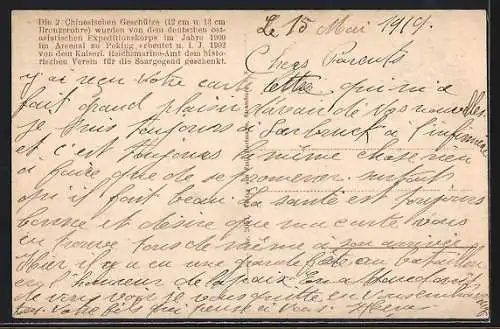 Die 2 Chinesischen Geschütze (12 cm u. 13 cm
Bronzerohre) wurden von dem deutschen ost-
asiatischen Expeditionskorps im Jahre 1900
im Arsenal zu Peking erbeutet u. i. J. 1902
von dem Kaiserl. Reichsmarine-Amt dem histo-
rischen Verein für die Saargegend geschenkt.
Le 15 Mai 1919.
Chers Parents
j'ai reçu votre carte lettre qui m'a
fait grand plaisir d'avoir de vos nouvelles
je suis toujours a Sarbruck a l'infirmerie
et c'est toujours la même chose rien
a faire que de se promener surtout
qu'il fait beau. la santé est toujours
bonne et désire que ma carte vous
en trouve tous de même à son arrivée
Hier il y a eu une grande fête au bataillon
en l'honneur de la paix En attendant
de vous voir je vous quitte en vous embrassant
votre fils qui pense à vous.